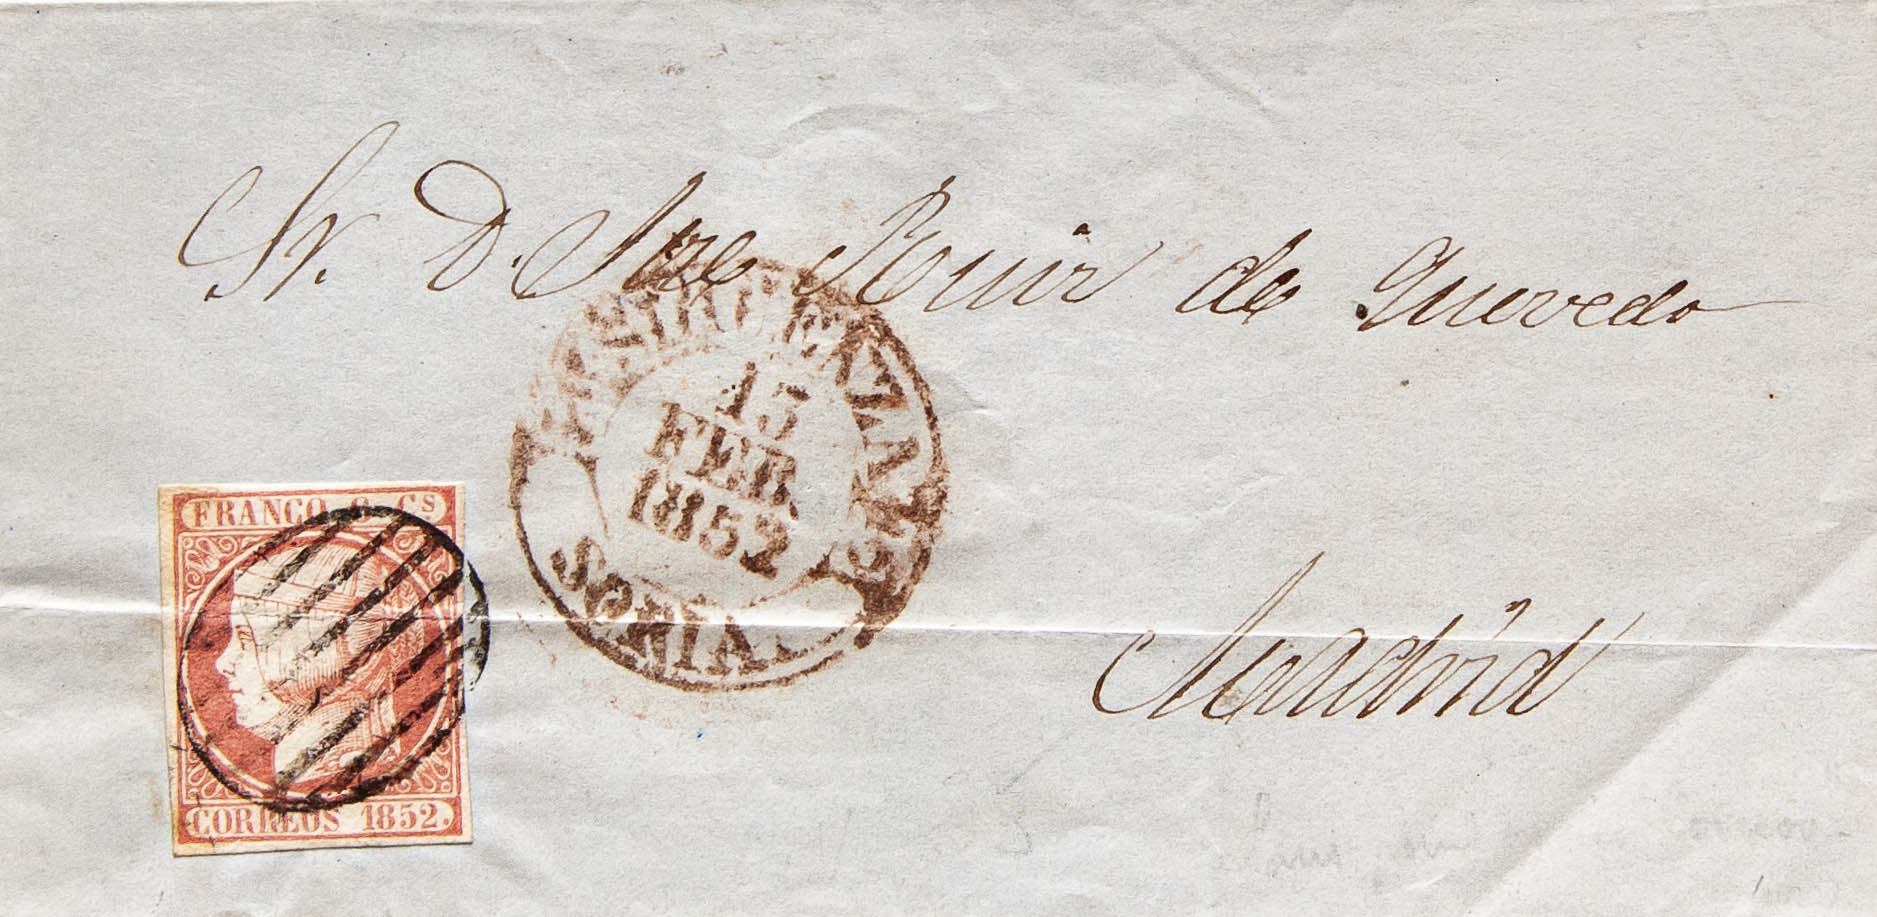 Sr. D. Jose Ruiz de Quevedo
15
FEB
1852
SORIA
FRANCO 6 Cs
Madrid
CORREOS 1852.